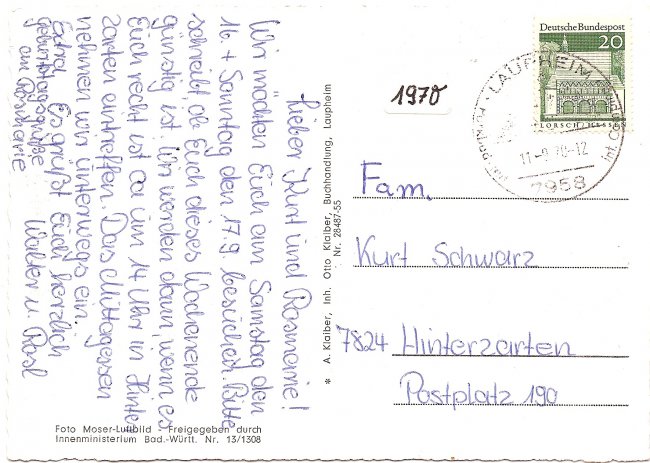 Lieber Kurt und Rosmarie!
Wir möchten Euch am Samstag den
16. + Sonntag den 17.9. besuchen. Bitte
schreibt, ob Euch dieses Wochenende
günstig ist. Wir werden dann wenn es
Euch recht ist ca um 14 Uhr in Hinter
zarten eintreffen. Das Mittagessen
nehmen wir unterwegs ein.
Es grüßt Euch herzlich
Walter u. Rosl
Extra
Geburtstagsgrüße
am Rosmarie
Foto Moser-Luftbild - Freigegeben durch
Innenministerium Bad.-Württ. Nr. 13/1308
* A. Klaiber, Inh. Otto Klaiber, Buchhandlung, Laupheim
Nr. 28487-55
1970
Deutsche Bundespost
20
LORSCH/HESSEN
LAUPHEIM
70-12
7958
Fam.
Kurt Schwarz
7824 Hinterzarten
Postplatz 190